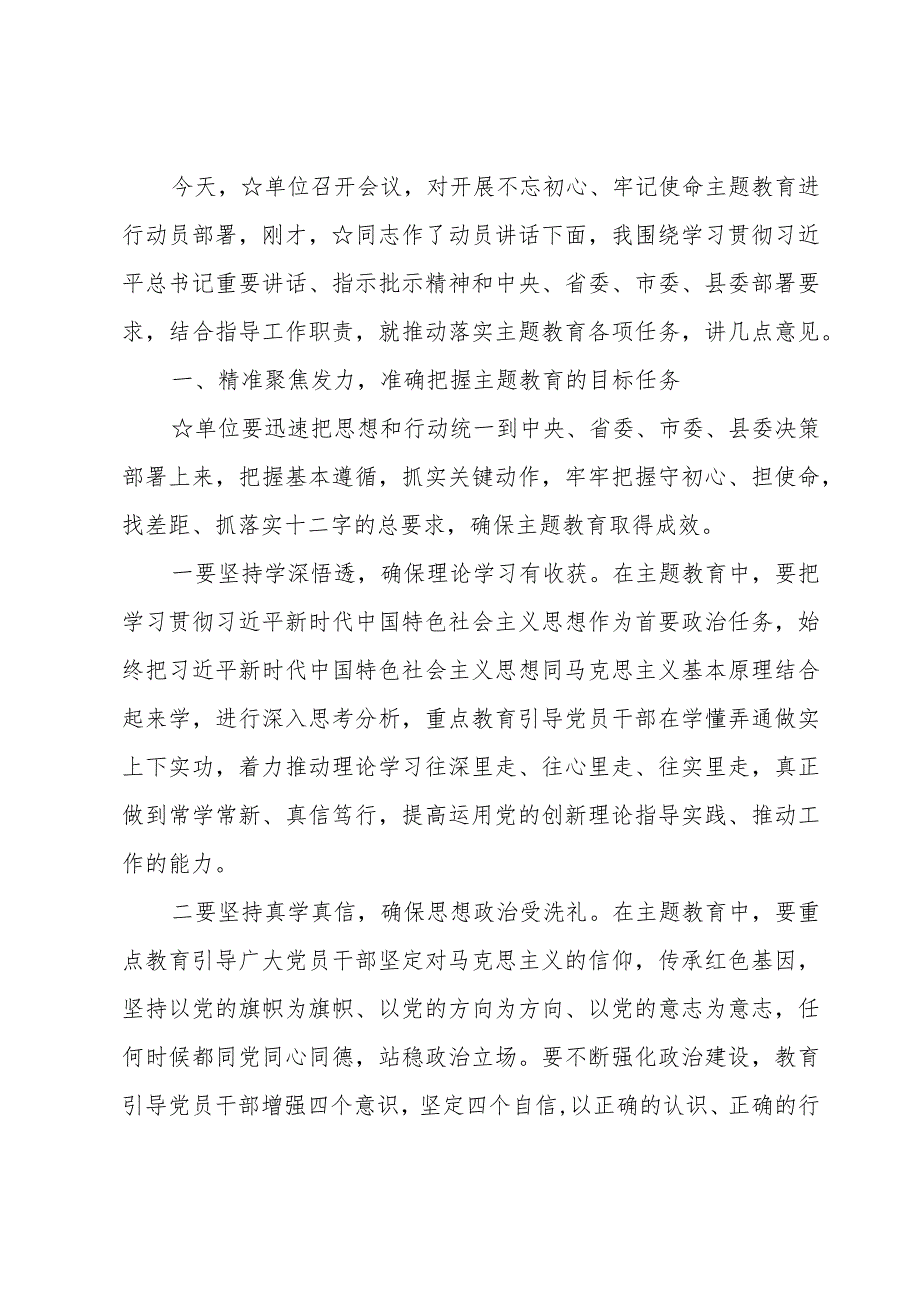 今天，☆单位召开会议，对开展不忘初心、牢记使命主题教育进
行动员部署，刚才，☆同志作了动员讲话下面，我围绕学习贯彻习近
平总书记重要讲话、指示批示精神和中央、省委、市委、县委部署要
求，结合指导工作职责，就推动落实主题教育各项任务，讲几点意见。
一、精准聚焦发力，准确把握主题教育的目标任务
☆单位要迅速把思想和行动统一到中央、省委、市委、县委决策
部署上来，把握基本遵循，抓实关键动作，牢牢把握守初心、担使命，
找差距、抓落实十二字的总要求，确保主题教育取得成效。
一要坚持学深悟透，确保理论学习有收获。在主题教育中，要把
学习贯彻习近平新时代中国特色社会主义思想作为首要政治任务，始
终把习近平新时代中国特色社会主义思想同马克思主义基本原理结合
起来学，进行深入思考分析，重点教育引导党员干部在学懂弄通做实
上下实功，着力推动理论学习往深里走、往心里走、往实里走，真正
做到常学常新、真信笃行，提高运用党的创新理论指导实践、推动工
作的能力。
二要坚持真学真信，确保思想政治受洗礼。在主题教育中，要重
点教育引导广大党员干部坚定对马克思主义的信仰，传承红色基因，
坚持以党的旗帜为旗帜、以党的方向为方向、以党的意志为意志，任
何时候都同党同心同德，站稳政治立场。要不断强化政治建设，教育
引导党员干部增强四个意识，坚定四个自信,以正确的认识、正确的行